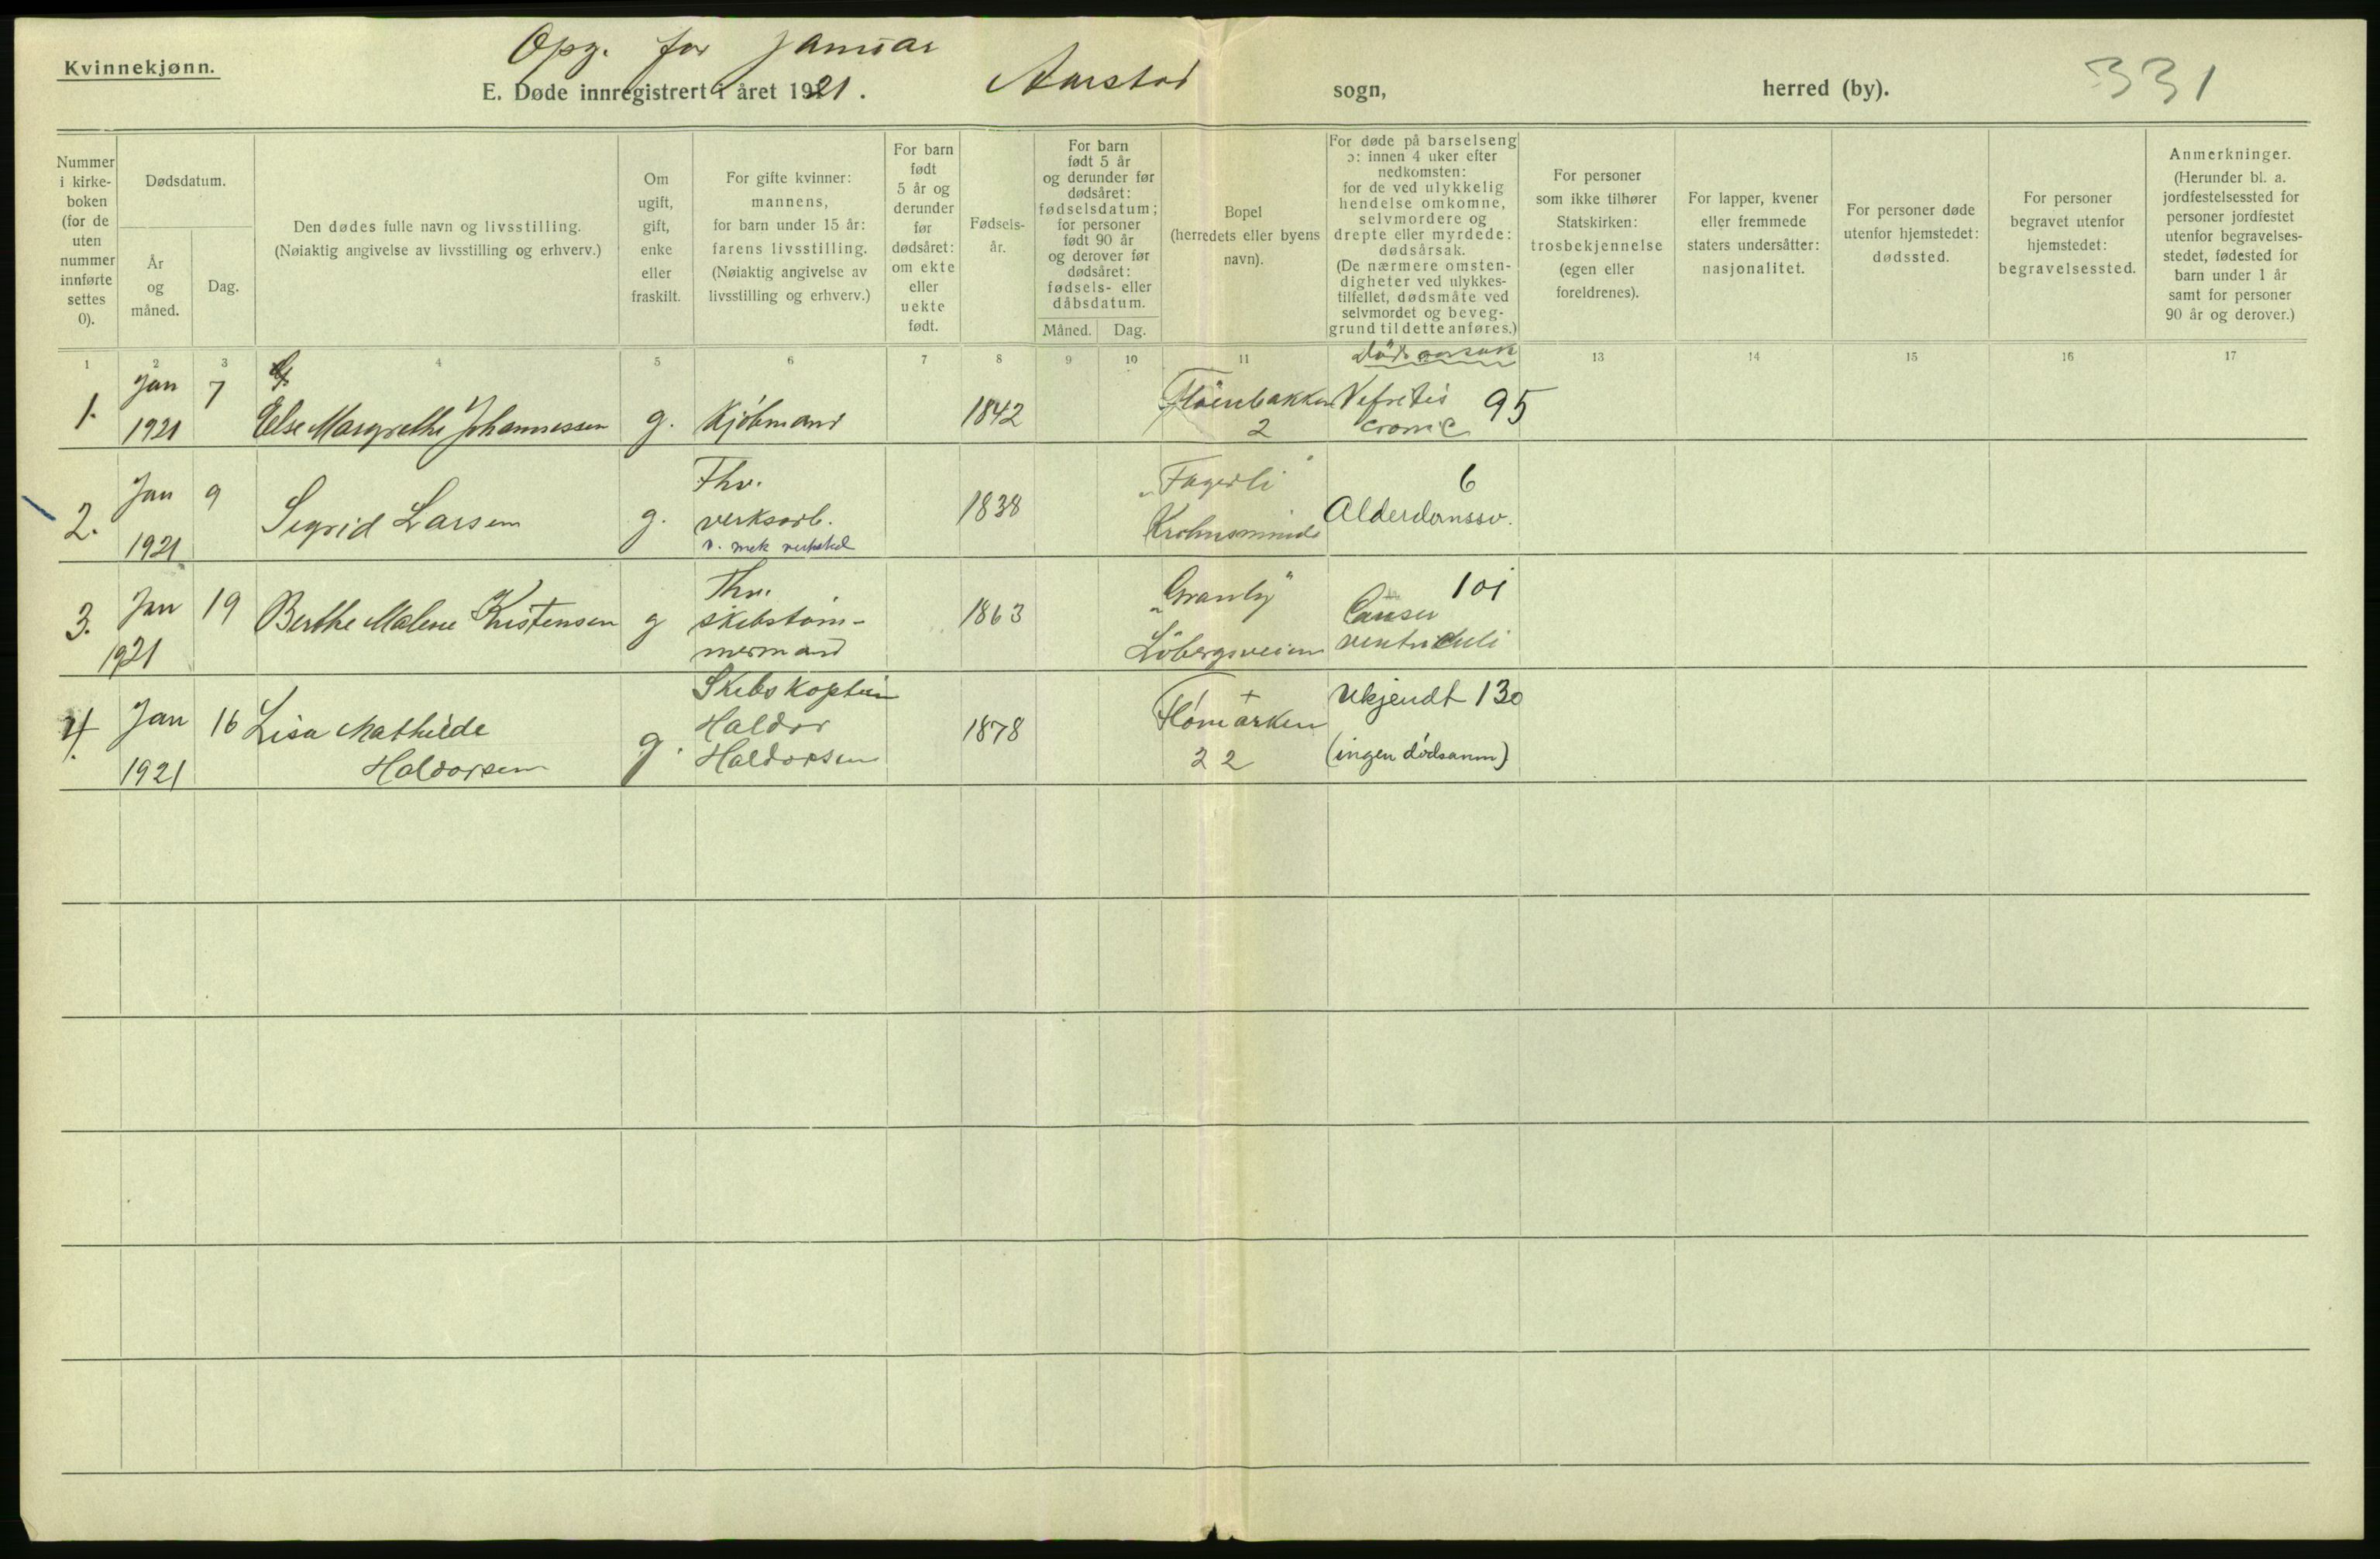 Kvinnekjønn.
Opg. for januar
E. Døde innregistrert i året 1921. Aarstad sogn, herred (by). 331
Nummer i kirkeboken (for de uten nummer innførte settes 0).
Dødsdatum.
År og måned.
Dag.
Den dødes fulle navn og livsstilling.
(Nøiaktig angivelse av livsstilling og erhverv.)
Om ugift, gift, enke eller fraskilt.
For gifte kvinner: mannens, for barn under 15 år: farens livsstilling.
(Nøiaktig angivelse av livsstilling og erhverv.)
For barn født 5 år og derunder før dødsåret: om ekte eller uekte født.
Fødselsår.
For barn født 5 år og derunder før dødsåret: fødselsdatum; for personer født 90 år og derover før dødsåret: fødsels- eller dåbsdatum.
Måned. Dag.
Bopel
(herredets eller byens navn).
For døde på barselseng ɔ: innen 4 uker efter nedkomsten: for de ved ulykkelig hendelse omkomne, selvmordere og drepte eller myrdede: dødsårsak.
(De nærmere omstendigheter ved ulykkestilfellet, dødsmåte ved selvmordet og beveggrund til dette anføres.)
For personer som ikke tilhører Statskirken: trosbekjennelse (egen eller foreldrenes).
For lapper, kvener eller fremmede staters undersåtter: nasjonalitet.
For personer døde utenfor hjemstedet: dødssted.
For personer begravet utenfor hjemstedet: begravelsessted.
Anmerkninger.
(Herunder bl. a. jordfestelsessted for personer jordfestet utenfor begravelsesstedet, fødested for barn under 1 år samt for personer 90 år og derover.)
1 2 3 4 5 6 7 8 9 10 11 13 14 15 16 17
Dødsaarsak
1. Jan 1921 7 Else Margrethe Johannessen g. Kjøbmand 1842 Fløenbakken 2 Nefritis cronic 95
2. Jan 1921 9 Sigrid Larsen g. Fhv. verksarb. v. mek verksted 1838 "Fagerli" Krohnsminde Alderdomssv. 6
3. Jan 1921 19 Berthe Malene Kristensen g Fhv. skibstømmermand 1863 "Granly" Löbergsveien Cancer ventriculi 101
4. Jan 1921 16 Lisa Mathilde Haldorsen g. Skibskaptein Haldor Haldorsen 1878 + 22 Ukjendt 130 (ingen dødsanm)